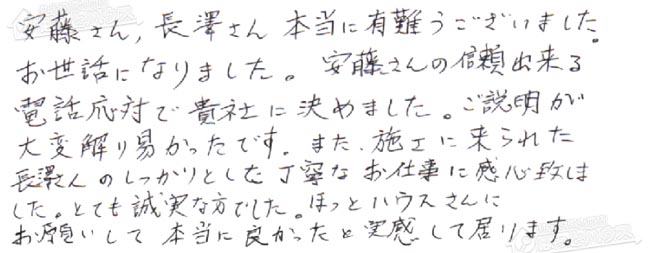 安藤さん,長澤さん 本当に有難うございました。
お世話になりました。安藤さんの信頼出来る
電話応対で貴社に決めました。ご説明が
大変解り易かったです。また、施工に来られた
長澤さんのしっかりとした丁寧なお仕事に感心致しま
した。とても誠実な方でした。ほっとハウスさんに
お願いして本当に良かったと実感して居ります。